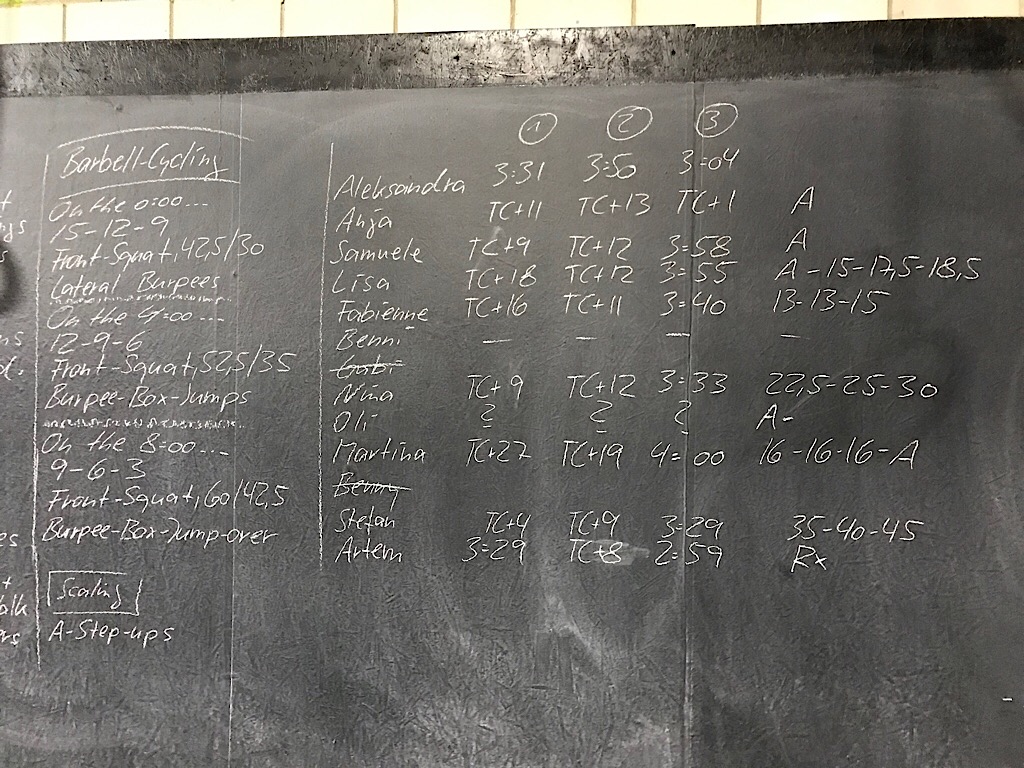 Barbell-Cycling
On the 0:00...
15-12-9
Front-Squat, 42,5/30
Lateral Burpees
On the 4:00...
12-9-6
Front-Squat, 52,5/35
Burpee-Box-Jumps
On the 8:00...
9-6-3
Front-Squat, 60/42,5
Burpee-Box-Jump-over
Scaling
A-Step-ups
1 2 3
Aleksandra 3:31 3:50 3:04
Anja TC+11 TC+13 TC+1 A
Samuele TC+9 TC+12 3:58 A
Lisa TC+18 TC+12 3:55 A-15-17,5-18,5
Fabienne TC+16 TC+11 3:40 13-13-15
Benni — — — —
Nina TC+9 TC+12 3:33 22,5-25-30
Oli ? ? ? A-
Martina TC+27 TC+19 4:00 16-16-16-A
Benny
Stefan TC+4 TC+9 3:29 35-40-45
Artem 3:29 TC+8 2:59 Rx